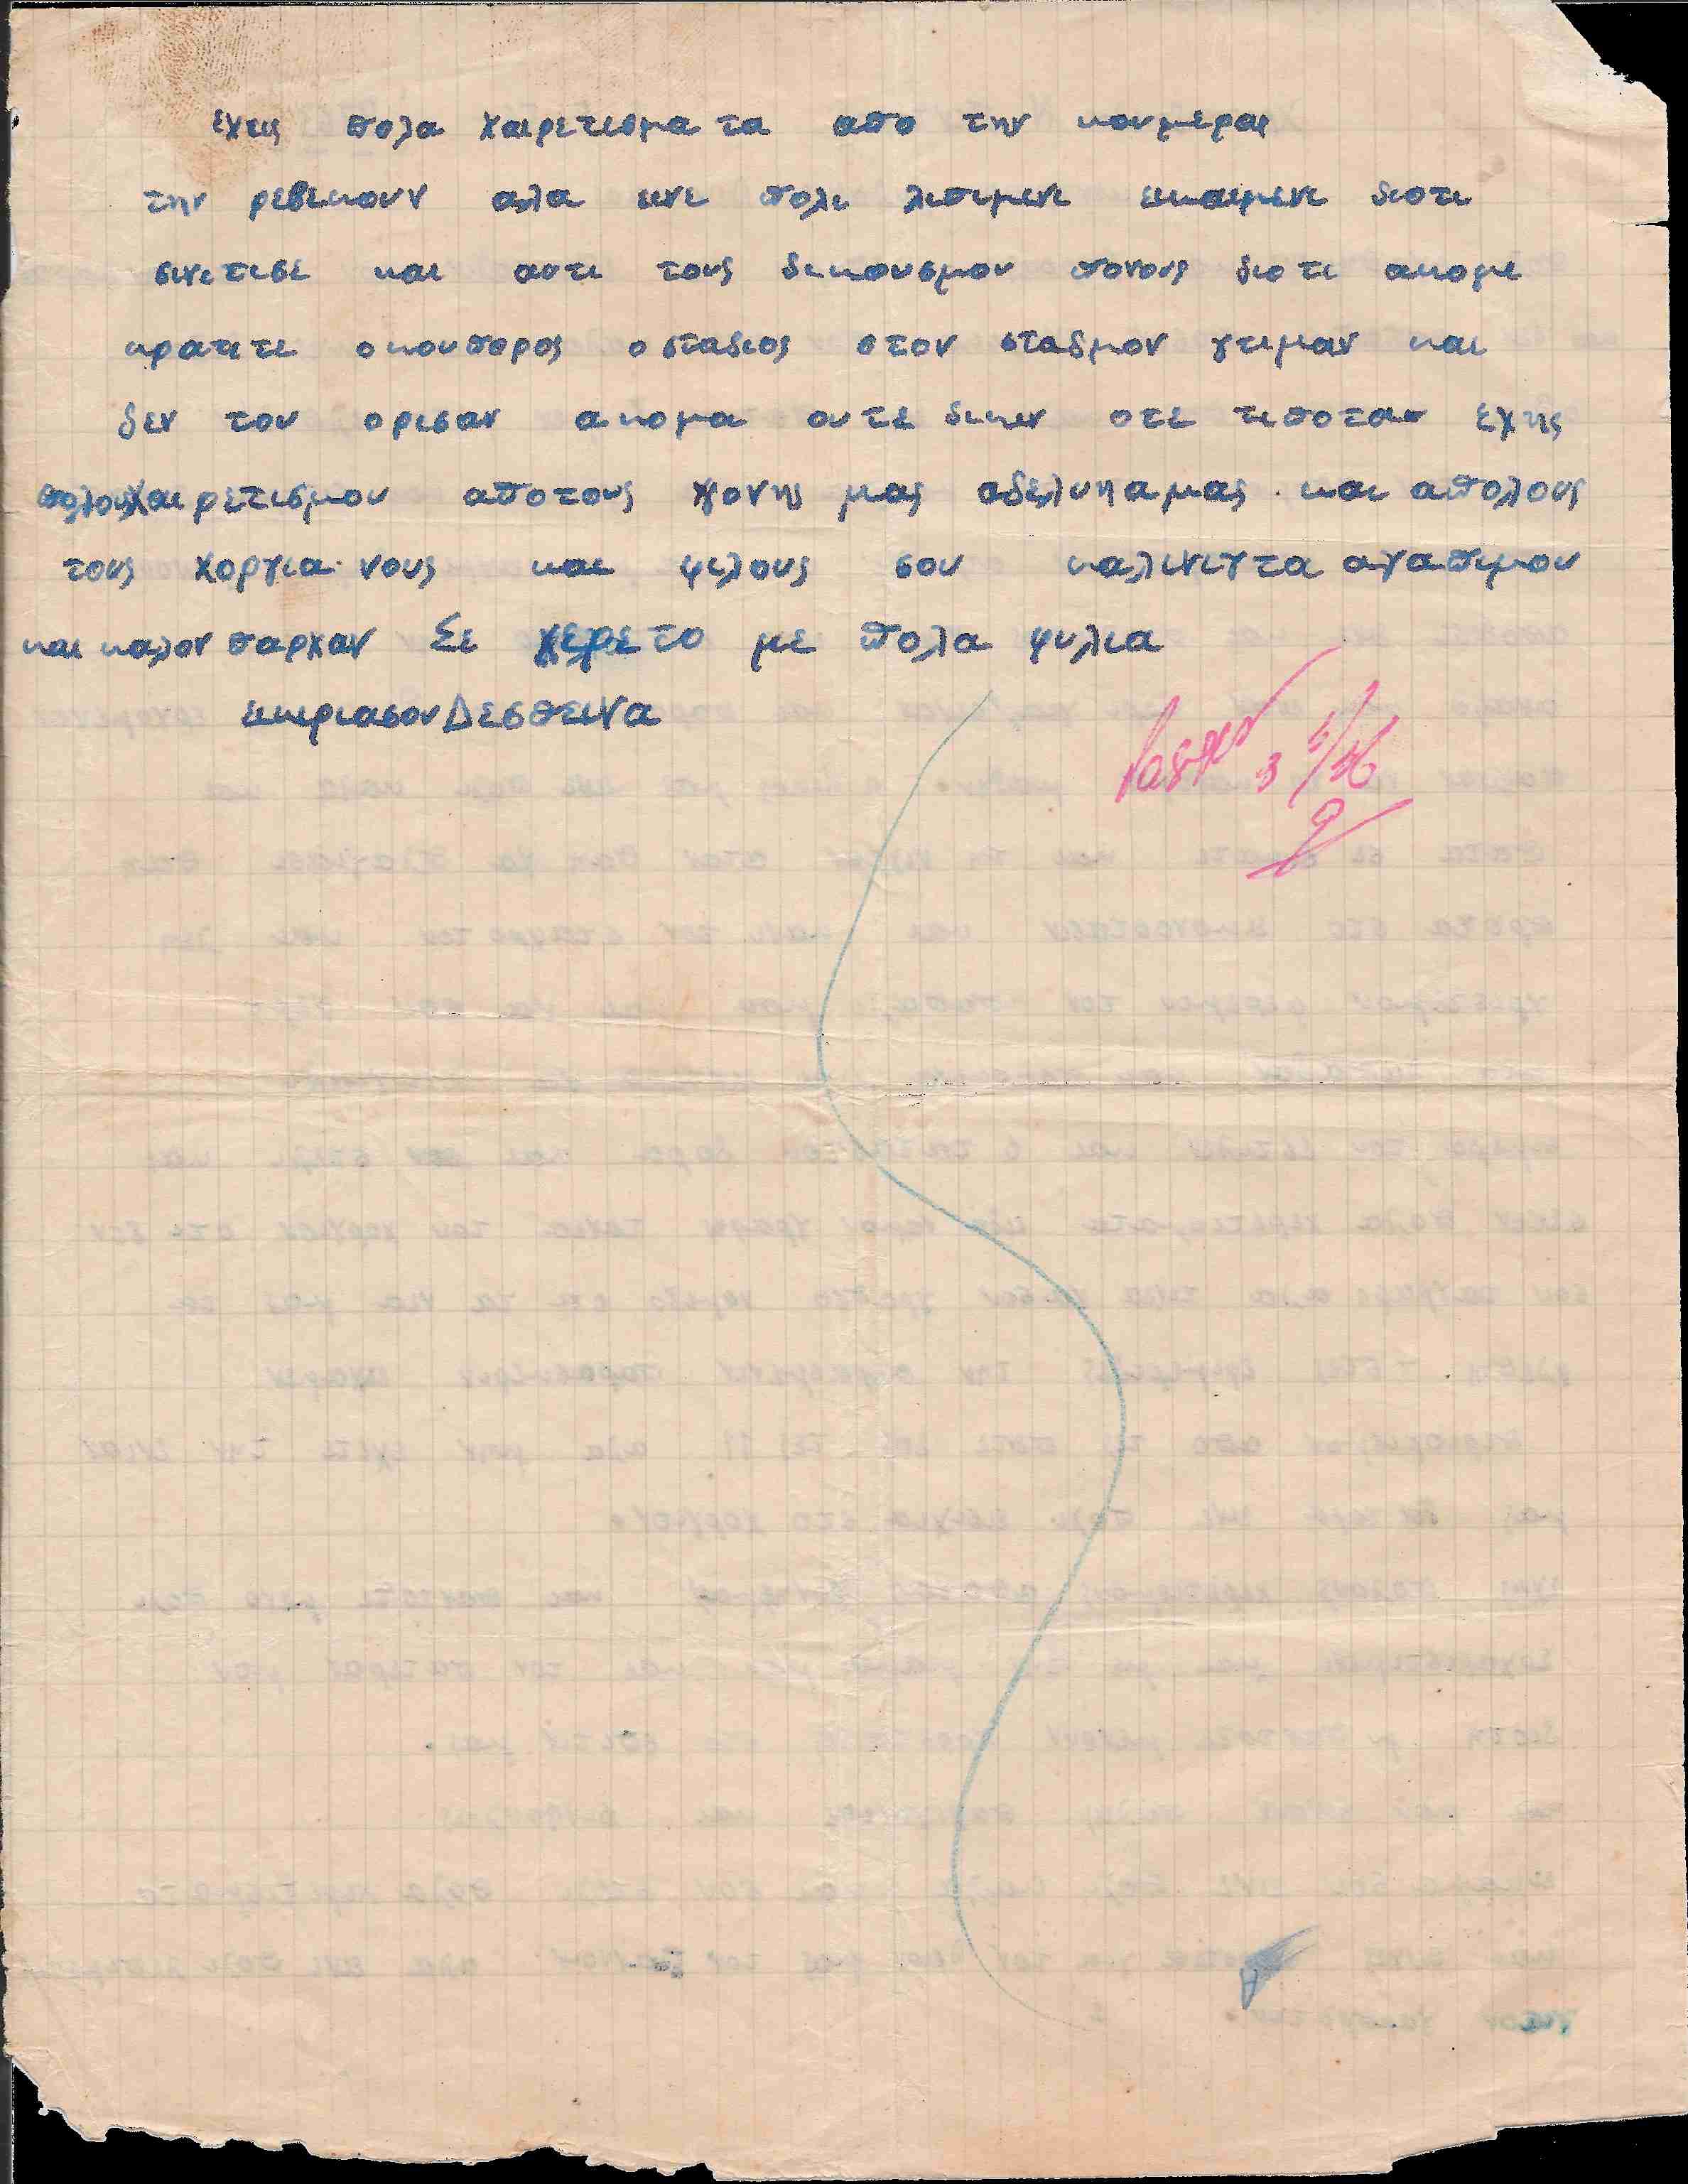 εχεις πολα χαιρετισματα απο την κουμεραι
την ρεβεκουν αλα εινε πολι λιπιμενι εικαιμενι διοτι
σινετισε και αυτι τους δικουσμου πονους διοτι ακομε
κρατιτε ο κουπαρος ο σταδιος στον σταδμον γτιμαν και
δεν τον ορισαν ακομα ουτε δικιν οτε τιποταν εχης
πολους χαιρετισμου αποτους γονης μας αδελυηαμας. και απολους
τους χοργιανους και ψιλους σου καλινειγτα αγαπιμου
και καλον πασχαν Σε χερετο με πολα ψυλια
εικιριασου Δεσπεινα
3 5/56